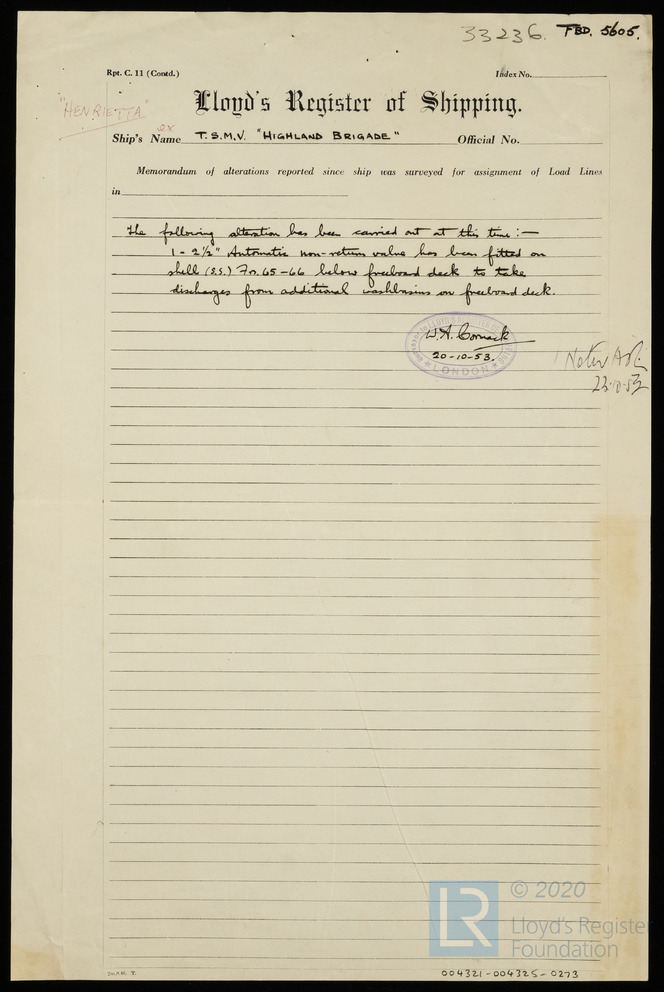 33236. FBD. 5605.
Rpt. C. 11 (Contd.)
Index No.
"HENRIETTA"
Lloyd's Register of Shipping.
ex
Ship's Name T.S.M.V. "HIGHLAND BRIGADE" Official No.
Memorandum of alterations reported since ship was surveyed for assignment of Load Lines
in
The following alteration has been carried out at this time:—
1 - 2½" Automatic non-return valve has been fitted on
shell (S.S.) Fr. 65-66 below freeboard deck to take
discharges from additional washbasins on freeboard deck.
W.A. Cormack
20-10-53.
LONDON
Noted
23.10.53
© 2020
LR
Lloyd's Register
Foundation
004321-004325-0273